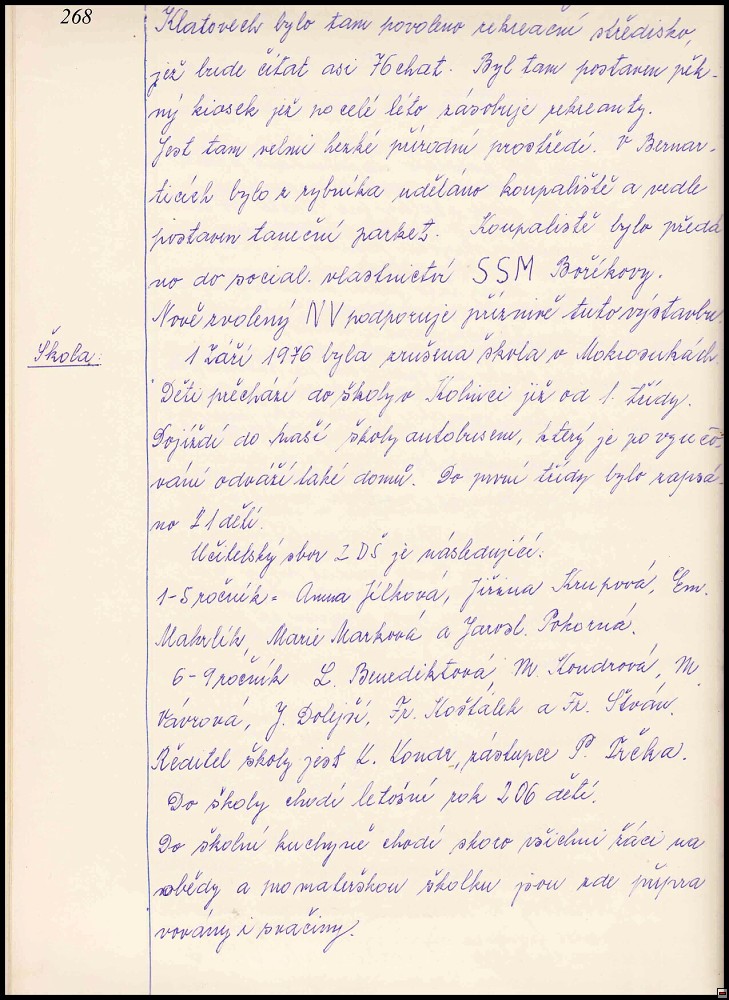 268
Klatovech bylo tam povoleno rekreační středisko,
jež bude čítat asi 76 chat. Byl tam postaven pěk-
ný kiosek jež po celé léto zásobuje rekreanty.
Jest tam velmi hezké přírodní prostředí. V Bernar-
ticích bylo z rybníka uděláno koupaliště a vedle
postaven taneční parket. Koupaliště bylo předá
no do social. vlastnictví SSM Bořikovy.
Nově zvolený NV podporuje příznivě tuto výstavbu.
Škola:
1 Září 1976 byla zrušena škola v Mokrosukách
Děti přechází do školy v Kolinci již od 1. třídy.
Dojíždí do naší školy autobusem, který je po vyučo-
vání odváží také domů. Do první třídy bylo zapsá-
no 21 dětí.
Učitelský sbor ZDŠ je následující:
1-5 ročník = Anna Jílková, Jiřina Krupová, Em.
Mahrlík, Marie Marková a Jarosl. Pokorná.
6-9 ročník L. Benediktová, M. Kondrová, M
Vávrová, J. Dolejší, Fr. Košťálek a Fr. Stván.
Ředitel školy jest K. Kondr, zástupce P. Trčka.
Do školy chodí letošní rok 206 dětí.
Do školní kuchyně chodí skoro všichni žáci na
obědy a pro mateřskou školku jsou zde připra
vovány i svačiny.